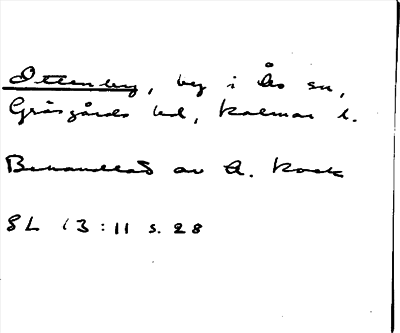 Ottenby, by i Ås sn,
Gräsgårds hd, Kalmar l.
Behandlad av A. Kock
SL 13:11 s. 28